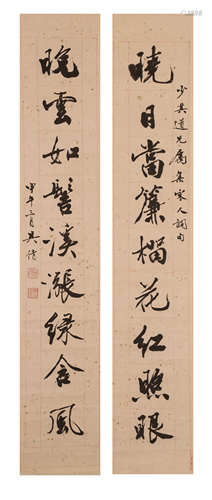 曉日當簾榴花紅照眼
少其道兄屬集宋人詞句
晚雲如髻溪漲綠含風
甲午二月吳倩